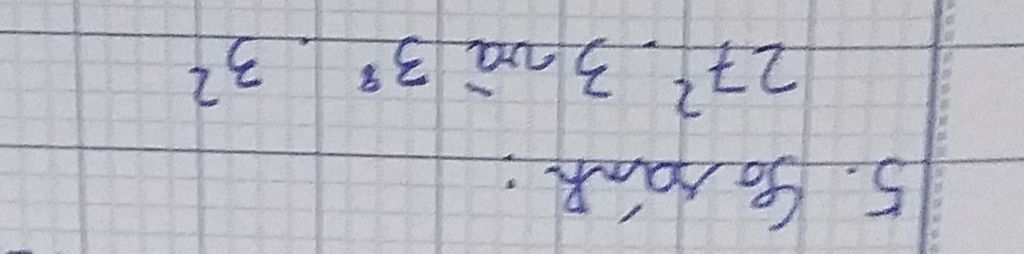 5. So sánh:
27² . 3 và 3⁸ . 3²